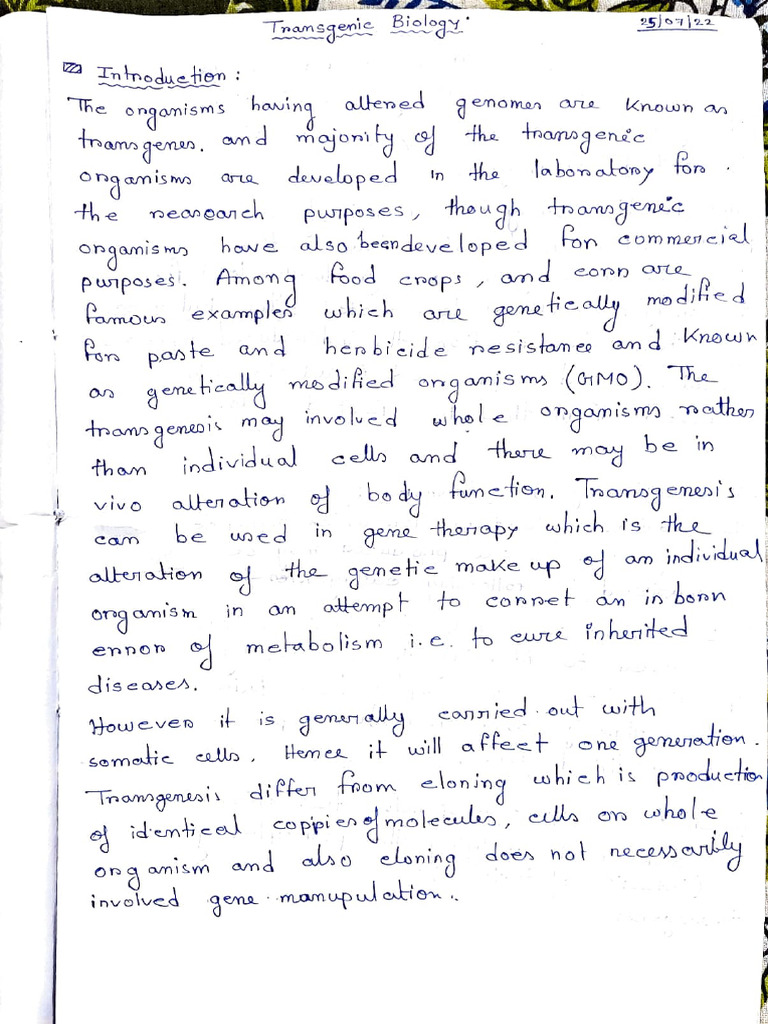 Transgenic Biology.
25/07/22
Introduction:
The organisms having altered genomes are known as
transgenes. and majority of the transgenic
organisms are developed in the laboratory for
the research purposes, though transgenic
organisms have also been developed for commercial
purposes. Among food crops, and corn are
famous examples which are genetically modified
for paste and herbicide resistance and known
as genetically modified organisms (GMO). The
transgenesis may involved whole organisms rather
than individual cells and there may be in
vivo alteration of body function. Transgenesis
can be used in gene therapy which is the
alteration of the genetic make up of an individual
organism in an attempt to correct an in born
error of metabolism i.e. to cure inherited
diseases.
However it is generally carried out with
somatic cells. Hence it will affect one generation.
Transgenesis differ from cloning which is production
of identical coppies of molecules, cells or whole
organism and also cloning does not necessarily
involved gene manupulation.